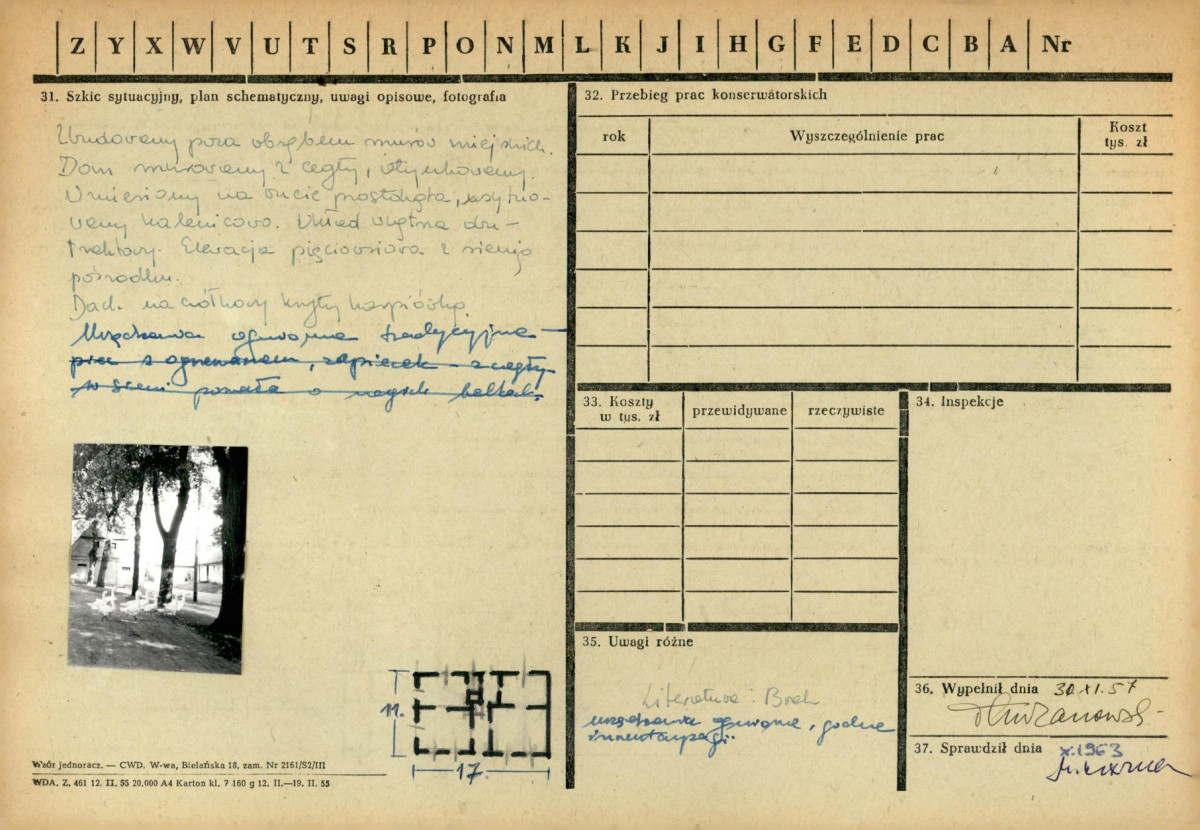 Z Y X W V U T S R P O N M L K J I H G F E D C B A Nr
31. Szkic sytuacyjny, plan schematyczny, uwagi opisowe, fotografia
Zbudowany poza obrębem murów miejskich.
Dom murowany z cegły, otynkowany.
Umiesiony na rzucie prostokąta, usytuo-
wany kalenicowo. Układ wnętrza dwu-
traktowy. Elewacja pięcioosiowa z sienią
pośrodku.
Dach naczółkowy kryty karpiówką.
Urządzenia ogniowe tradycyjne —
piec z ogrzewaniem, zapiecek - z cegły.
w sieni powała o nagich belkach.
11.
17.
Wzór jednoracz. — CWD. W-wa, Bielańska 18, zam. Nr 2161/S2/III
WDA. Z. 461 12. II. 55 20.000 A4 Karton kl. 7 160 g 12. II.—19. II. 55
32. Przebieg prac konserwatorskich
rok
Wyszczególnienie prac
Koszt tys. zł
33. Koszty w tys. zł
przewidywane
rzeczywiste
34. Inspekcje
35. Uwagi różne
Literatura: Brak
urządzenia ogniowe, godne
inwentaryzacji.
36. Wypełnił dnia 30.XI.57
37. Sprawdził dnia X.1963